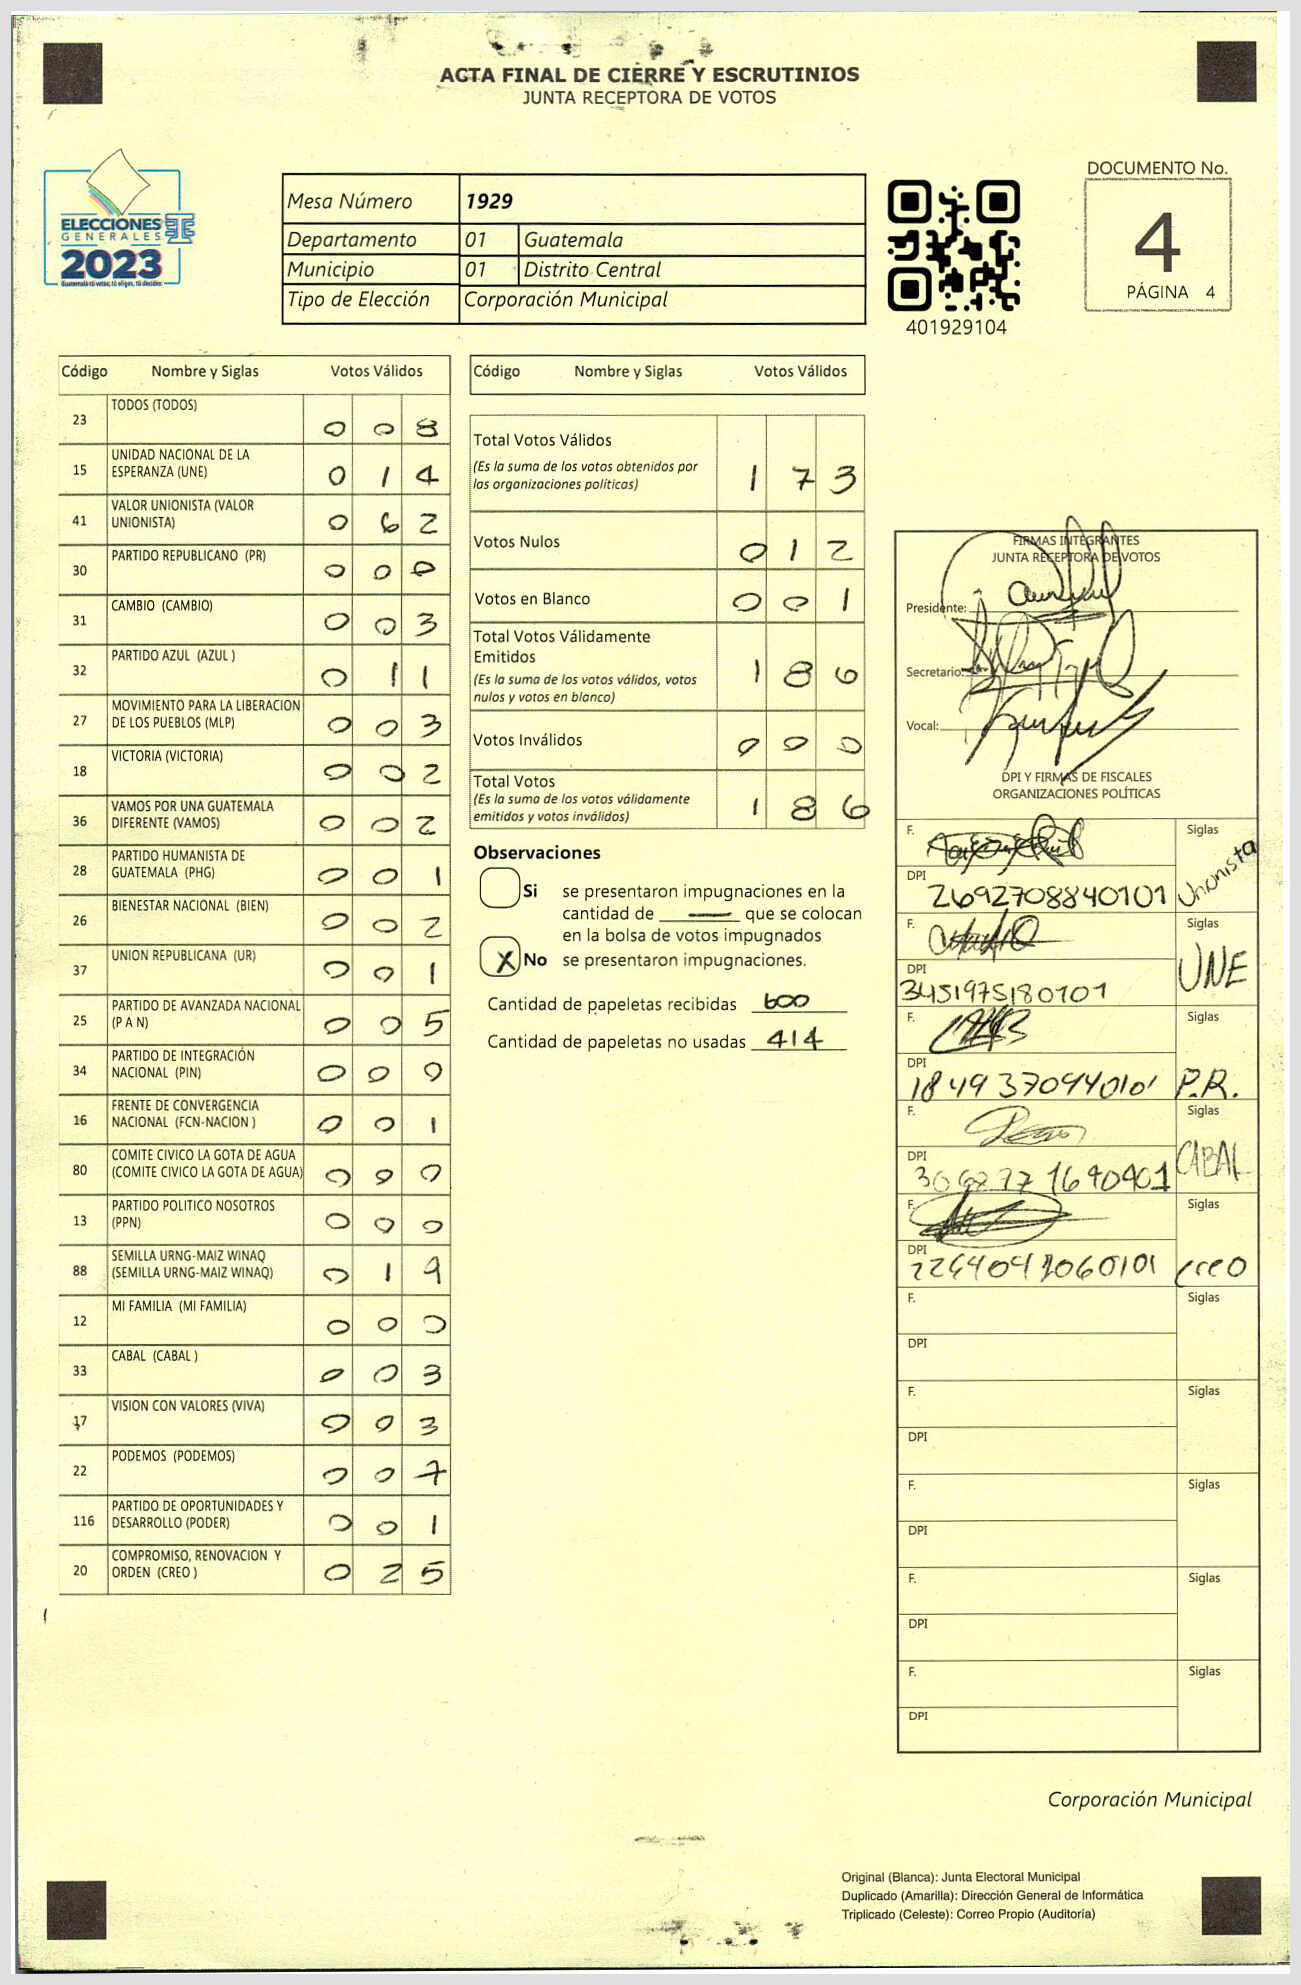 ACTA FINAL DE CIERRE Y ESCRUTINIOS
JUNTA RECEPTORA DE VOTOS
ELECCIONES
GENERALES
2023
Guatemala tú votas, tú eliges, tú decides
Mesa Número 1929
Departamento 01 Guatemala
Municipio 01 Distrito Central
Tipo de Elección Corporación Municipal
401929104
DOCUMENTO No.
4
PÁGINA 4
Código Nombre y Siglas Votos Válidos
23 TODOS (TODOS) 0 0 8
15 UNIDAD NACIONAL DE LA ESPERANZA (UNE) 0 1 4
41 VALOR UNIONISTA (VALOR UNIONISTA) 0 6 2
30 PARTIDO REPUBLICANO (PR) 0 0 0
31 CAMBIO (CAMBIO) 0 0 3
32 PARTIDO AZUL (AZUL ) 0 1 1
27 MOVIMIENTO PARA LA LIBERACION DE LOS PUEBLOS (MLP) 0 0 3
18 VICTORIA (VICTORIA) 0 0 2
36 VAMOS POR UNA GUATEMALA DIFERENTE (VAMOS) 0 0 2
28 PARTIDO HUMANISTA DE GUATEMALA (PHG) 0 0 1
26 BIENESTAR NACIONAL (BIEN) 0 0 2
37 UNION REPUBLICANA (UR) 0 0 1
25 PARTIDO DE AVANZADA NACIONAL (P A N) 0 0 5
34 PARTIDO DE INTEGRACIÓN NACIONAL (PIN) 0 0 0
16 FRENTE DE CONVERGENCIA NACIONAL (FCN-NACION ) 0 0 1
80 COMITE CIVICO LA GOTA DE AGUA (COMITE CIVICO LA GOTA DE AGUA) 0 0 0
13 PARTIDO POLITICO NOSOTROS (PPN) 0 0 0
88 SEMILLA URNG-MAIZ WINAQ (SEMILLA URNG-MAIZ WINAQ) 0 1 9
12 MI FAMILIA (MI FAMILIA) 0 0 0
33 CABAL (CABAL ) 0 0 3
17 VISION CON VALORES (VIVA) 0 0 3
22 PODEMOS (PODEMOS) 0 0 7
116 PARTIDO DE OPORTUNIDADES Y DESARROLLO (PODER) 0 0 1
20 COMPROMISO, RENOVACION Y ORDEN (CREO ) 0 2 5
Código Nombre y Siglas Votos Válidos
Total Votos Válidos 1 7 3
(Es la suma de los votos obtenidos por
las organizaciones políticas)
Votos Nulos 0 1 2
Votos en Blanco 0 0 1
Total Votos Válidamente
Emitidos 1 8 6
(Es la suma de los votos válidos, votos
nulos y votos en blanco)
Votos Inválidos 0 0 0
Total Votos 1 8 6
(Es la suma de los votos válidamente
emitidos y votos inválidos)
Observaciones
Si se presentaron impugnaciones en la
cantidad de — que se colocan
en la bolsa de votos impugnados
X No se presentaron impugnaciones.
Cantidad de papeletas recibidas 600
Cantidad de papeletas no usadas 414
FIRMAS INTEGRANTES
JUNTA RECEPTORA DE VOTOS
Presidente:
Secretario:
Vocal:
DPI Y FIRMAS DE FISCALES
ORGANIZACIONES POLÍTICAS
F. Siglas
DPI 2692708840101 Unionista
F. Siglas
DPI 3451975180101 UNE
F. Siglas
DPI 1849370940101 P.R.
F. Siglas
DPI CABAL
F. Siglas
DPI creo
F. Siglas
DPI
F. Siglas
DPI
F. Siglas
DPI
F. Siglas
DPI
F. Siglas
DPI
Corporación Municipal
Original (Blanca): Junta Electoral Municipal
Duplicado (Amarilla): Dirección General de Informática
Triplicado (Celeste): Correo Propio (Auditoría)